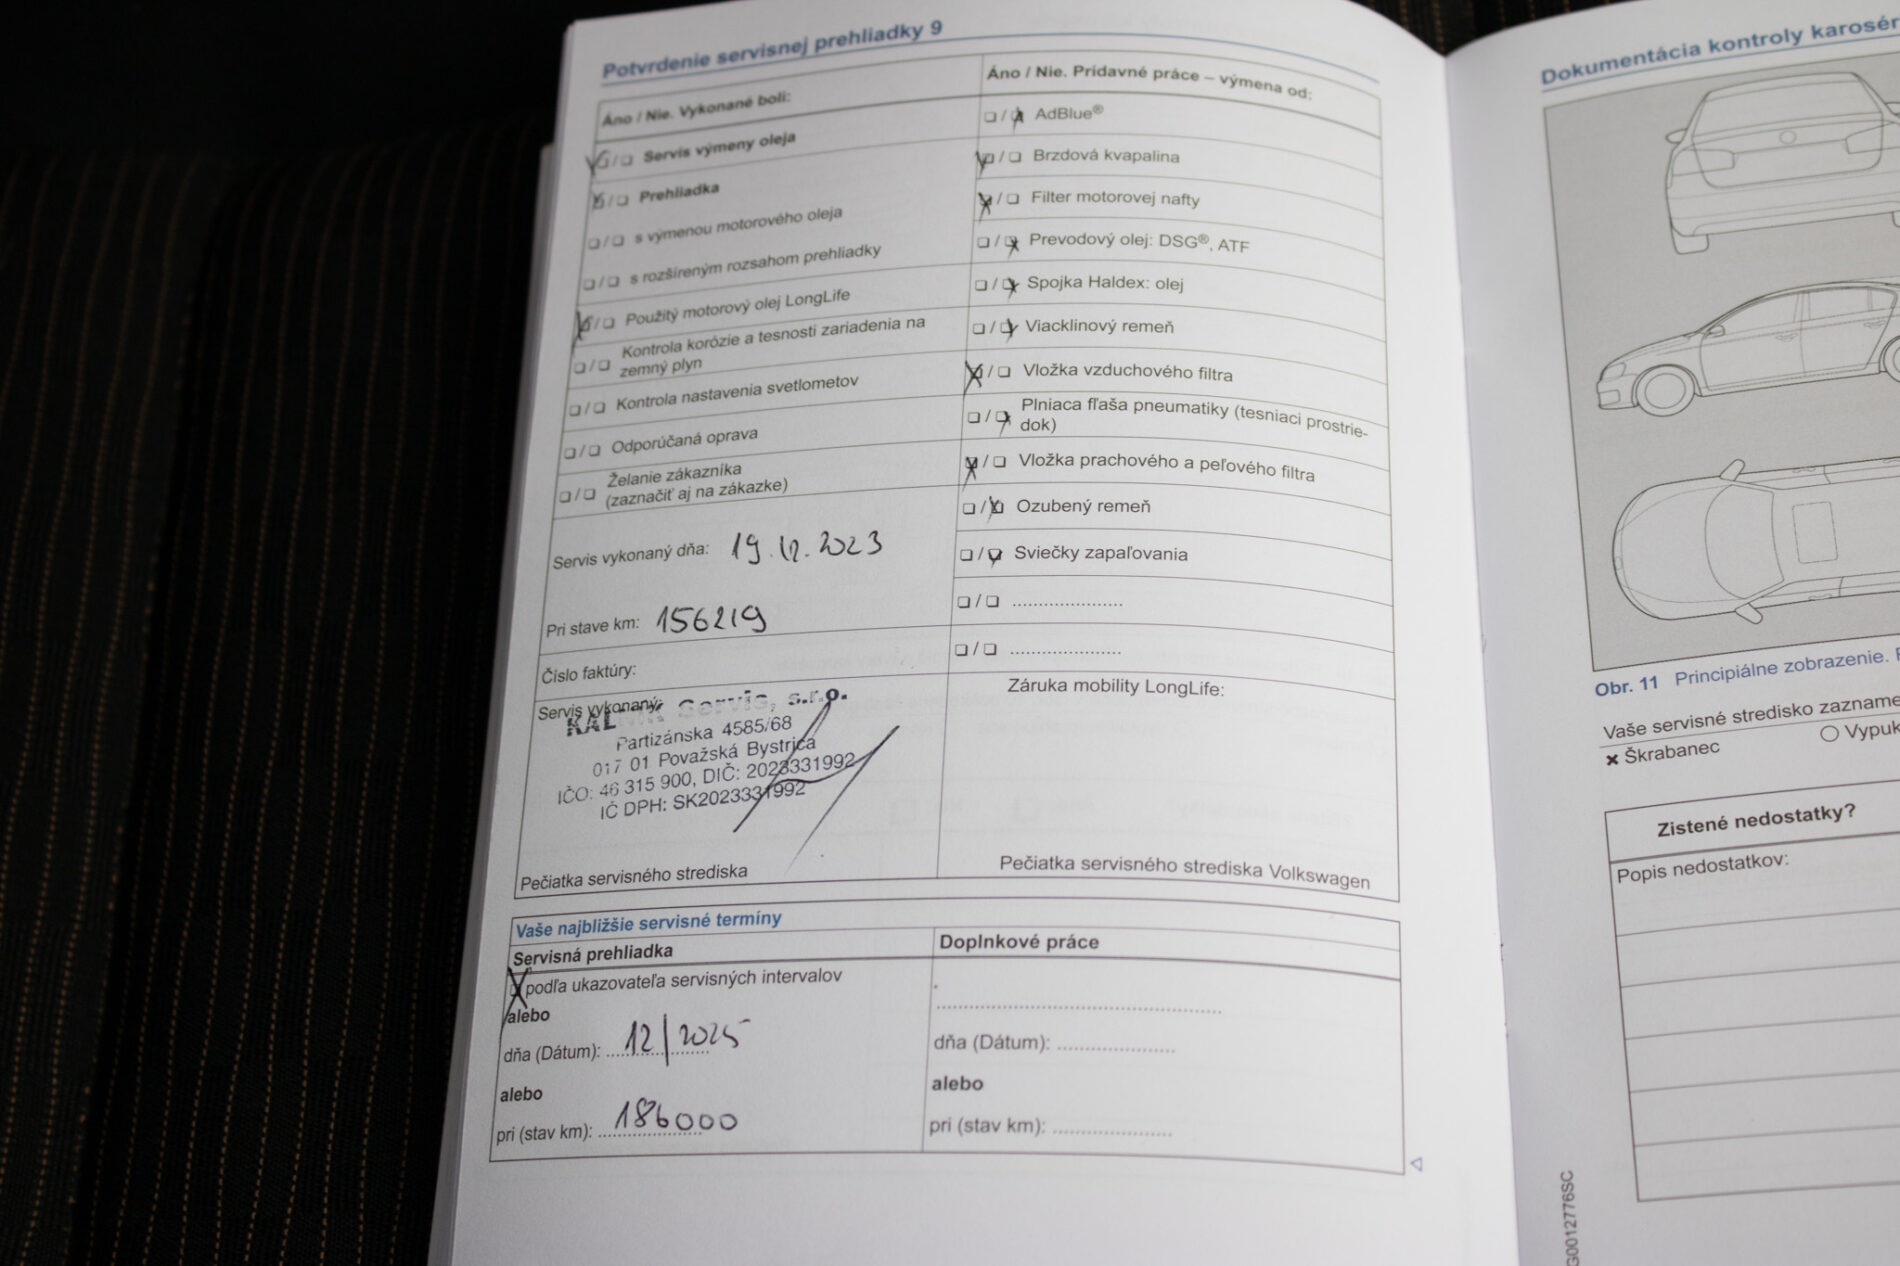 Potvrdenie servisnej prehliadky 9
Áno / Nie. Vykonané boli:
Servis výmeny oleja
Prehliadka
s výmenou motorového oleja
s rozšíreným rozsahom prehliadky
Použitý motorový olej LongLife
Kontrola korózie a tesnosti zariadenia na
zemný plyn
Kontrola nastavenia svetlometov
Odporúčaná oprava
Želanie zákazníka
(zaznačiť aj na zákazke)
Servis vykonaný dňa: 19.12.2023
Pri stave km: 156219
Číslo faktúry:
Servis vykonaný:
Servis, s.r.o.
Partizánska 4585/68
017 01 Považská Bystrica
IČO: 46 315 900, DIČ: 2023331992
IČ DPH: SK2023331992
Pečiatka servisného strediska
Áno / Nie. Prídavné práce – výmena od:
AdBlue®
Brzdová kvapalina
Filter motorovej nafty
Prevodový olej: DSG®, ATF
Spojka Haldex: olej
Viacklinový remeň
Vložka vzduchového filtra
Plniaca fľaša pneumatiky (tesniaci prostrie-
dok)
Vložka prachového a peľového filtra
Ozubený remeň
Sviečky zapaľovania
Záruka mobility LongLife:
Pečiatka servisného strediska Volkswagen
Vaše najbližšie servisné termíny
Servisná prehliadka
podľa ukazovateľa servisných intervalov
alebo
dňa (Dátum): 12/2025
alebo
pri (stav km): 186000
Doplnkové práce
dňa (Dátum):
alebo
pri (stav km):
Dokumentácia kontroly karosér
Obr. 11 Principiálne zobrazenie.
Vaše servisné stredisko zazname
Škrabanec
Vypuk
Zistené nedostatky?
Popis nedostatkov:
G0012776SC